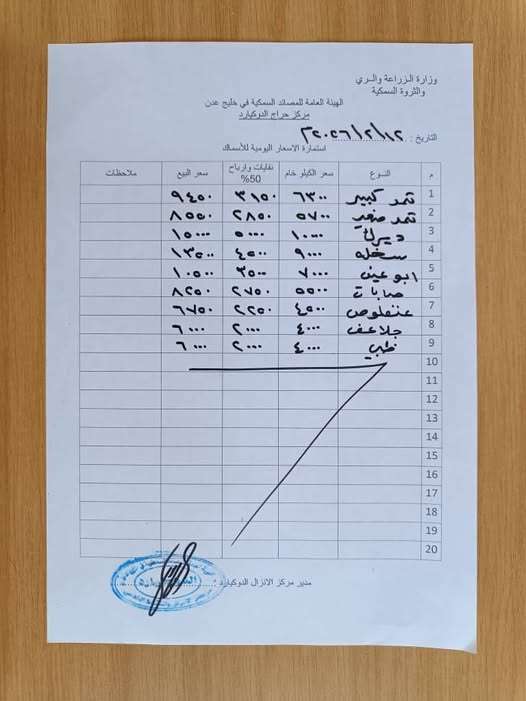 وزارة الزراعة والري
والثروة السمكية
الهيئة العامة للمصائد السمكية في خليج عدن
مركز حراج الدوكيارد
التاريخ : ٢٠٢٦/٢/١٢م
استمارة الاسعار اليومية للأسماك
م النوع سعر الكيلو خام نفايات وارباح 50% سعر البيع ملاحظات
1 ثمد كبير ٦٣٠٠ ٣١٥٠ ٩٤٥٠
2 ثمد صغير ٥٧٠٠ ٢٨٥٠ ٨٥٥٠
3 ديرك ١٠٠٠٠ ٥٠٠٠ ١٥٠٠٠
4 سخله ٩٠٠٠ ٤٥٠٠ ١٣٥٠٠
5 ابو عين ٧٠٠٠ ٣٥٠٠ ١٠٥٠٠
6 ٥٥٠٠ ٢٧٥٠ ٨٢٥٠
7 عنفلوص ٤٥٠٠ ٢٢٥٠ ٦٧٥٠
8 جلاعف ٤٠٠٠ ٢٠٠٠ ٦٠٠٠
9 ٤٠٠٠ ٢٠٠٠ ٦٠٠٠
10
11
12
13
14
15
16
17
18
19
20
مدير مركز الانزال الدوكيارد :